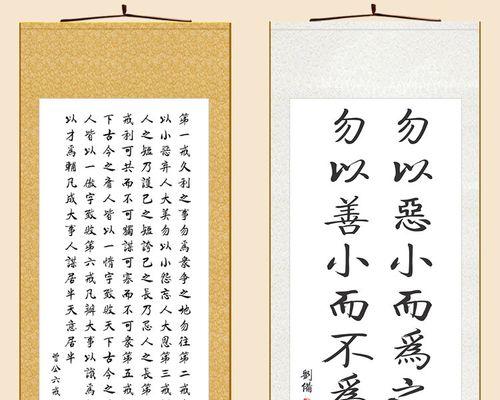 第一戒久利之事勿爲衆爭之地勿往第二戒
以小惡棄人大美勿以小怨忘人大恩第三戒
人之短乃護己之短誇己之長乃忌人之長第
戒利可共而不可獨謀可寡而不可衆第五戒
下古今之庸人皆以一惰字致敗天下古今之
人皆以一傲字致敗第六戒凡辦大事以識爲
以才爲輔凡成大事人謀居半天意居半
曾公六戒
勿以惡小而爲之
勿以善小而不爲
劉備